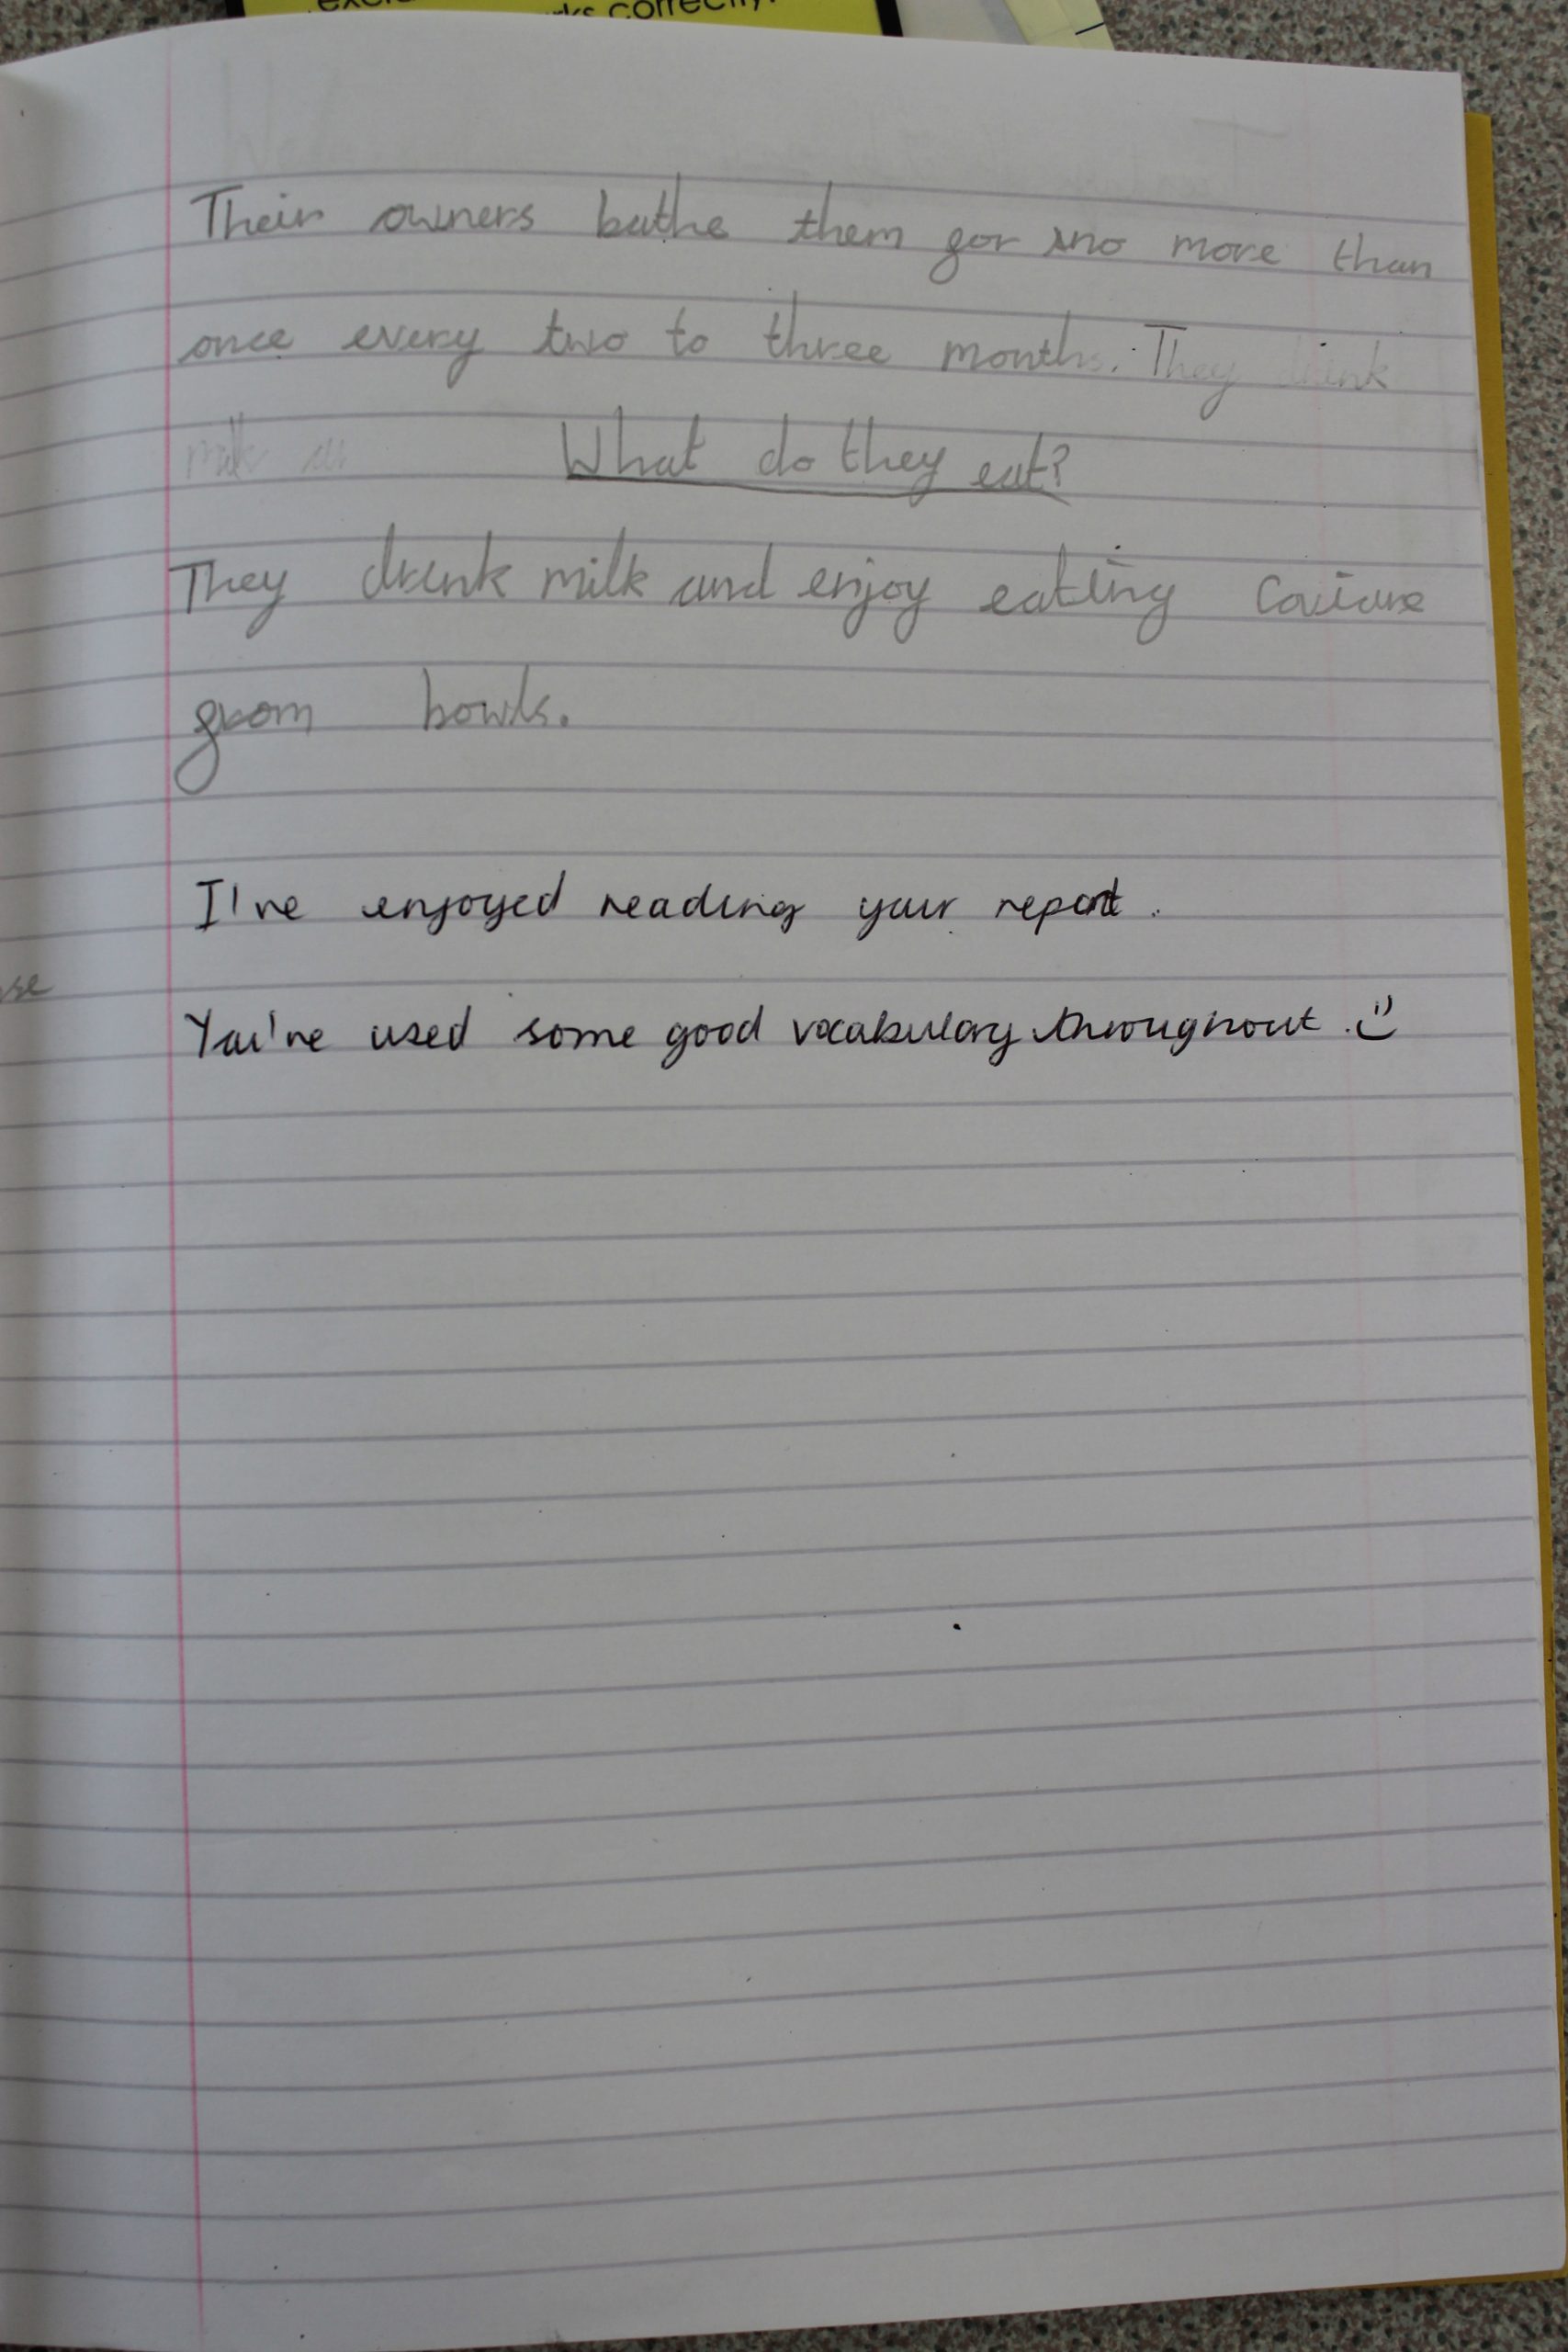 correctly.
Their owners bathe them for no more than
once every two to three months. They drink
milk an
What do they eat?
They drink milk and enjoy eating Caviare
from bowls.
I've enjoyed reading your report.
se
You've used some good vocabulary throughout. :)